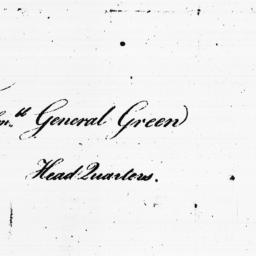 General Green
Head Quarters.